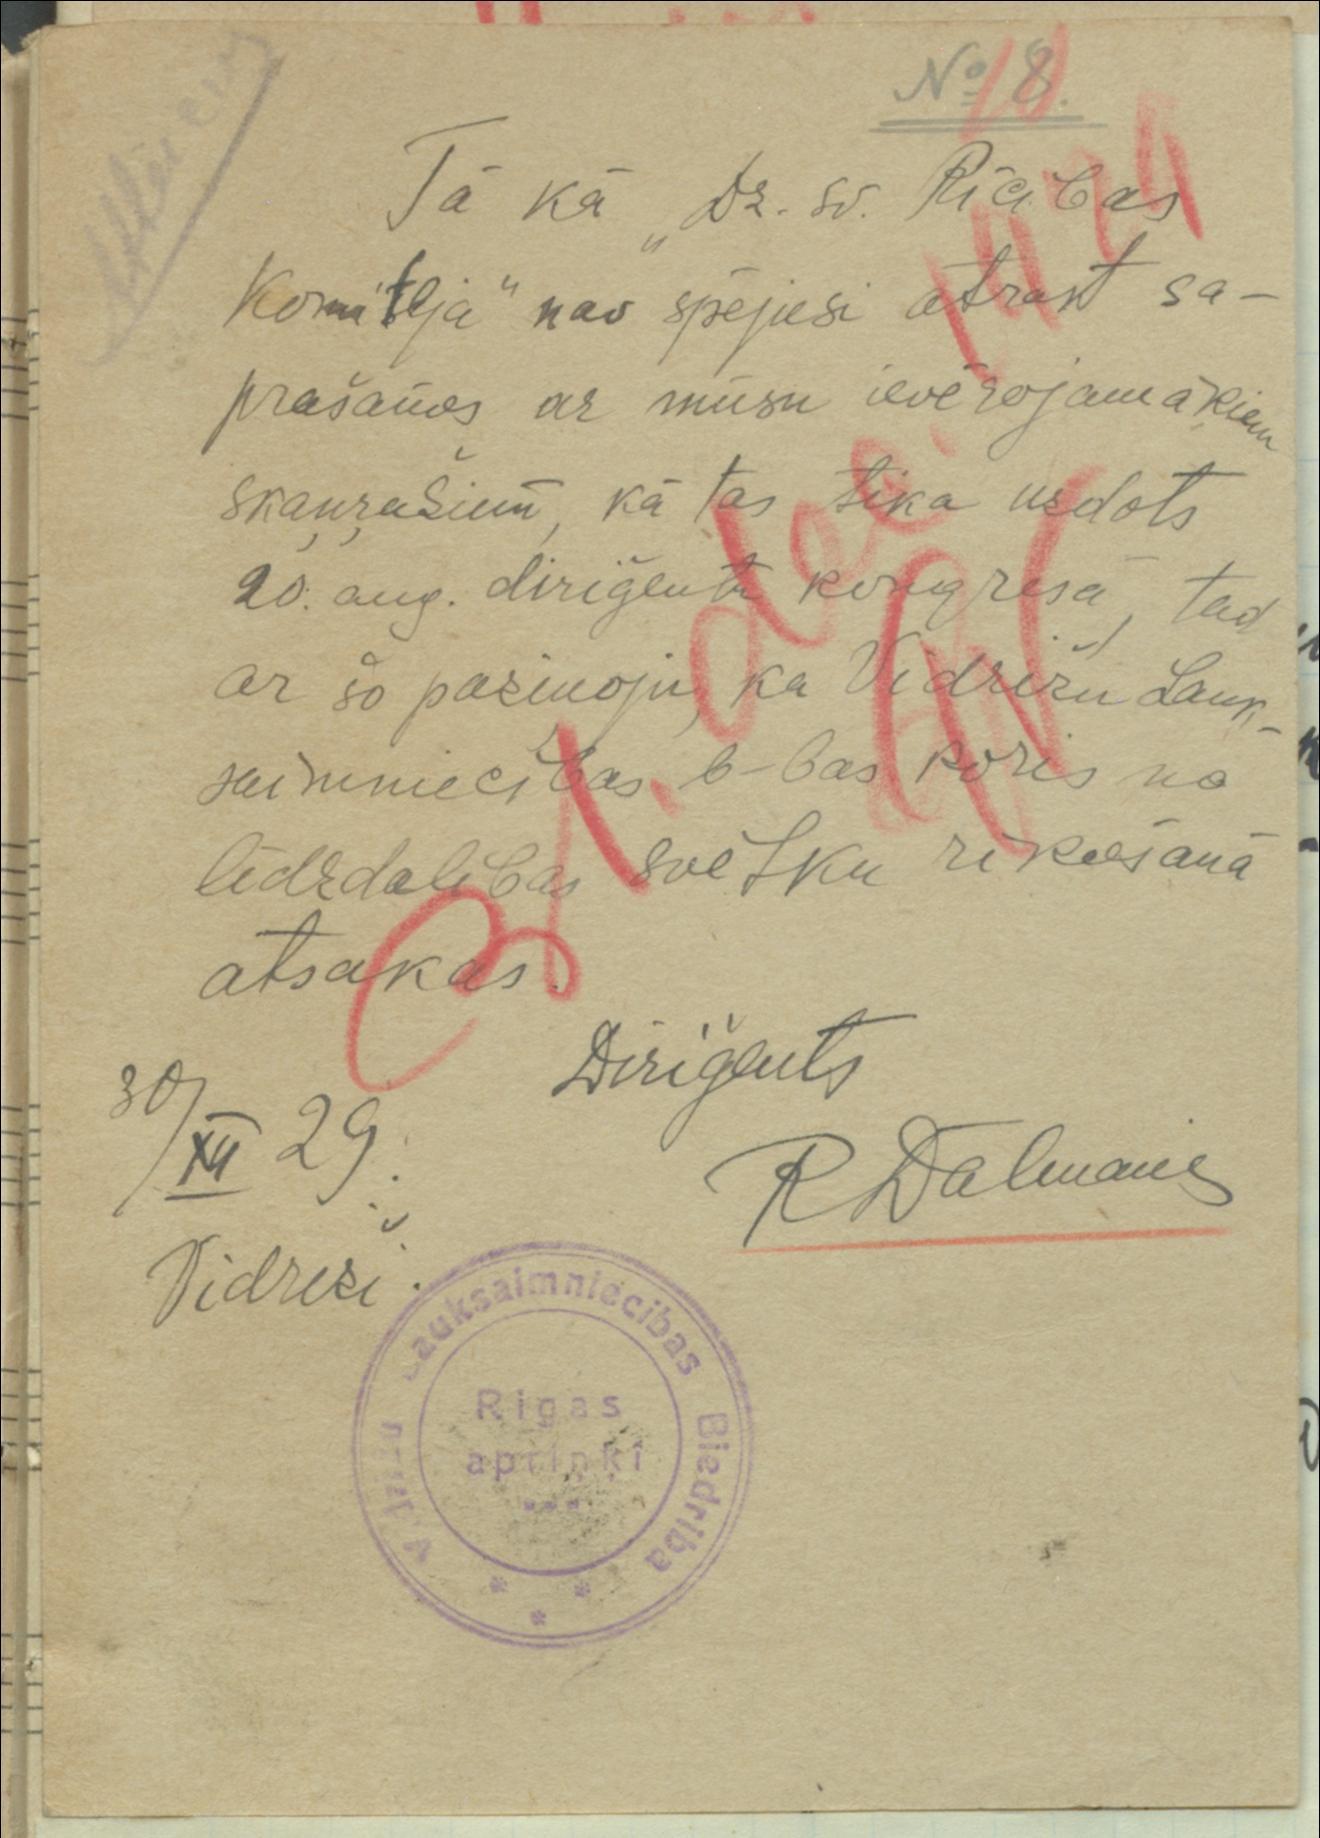 № 8.
Tā kā „Dz. sv. Rīcības
Komiteja" nav spējusi atrast sa-
prašanos ar mūsu ievērojamākiem
skaņŗašiem, kā tas tika uzdots
20. aug. diriģentu kongresā, tad
ar šo paziņoju, ka Vidrižu Lauk-
saimniecības b-bas koris no
līdzdalības svētku rīkošanā
atsakas.
31. dec. 1929
Diriģents
30/XII 29.
R Dālmanis
Vidriži.
Vidrižu Lauksaimniecības Biedrība
Rīgas
apriņķī